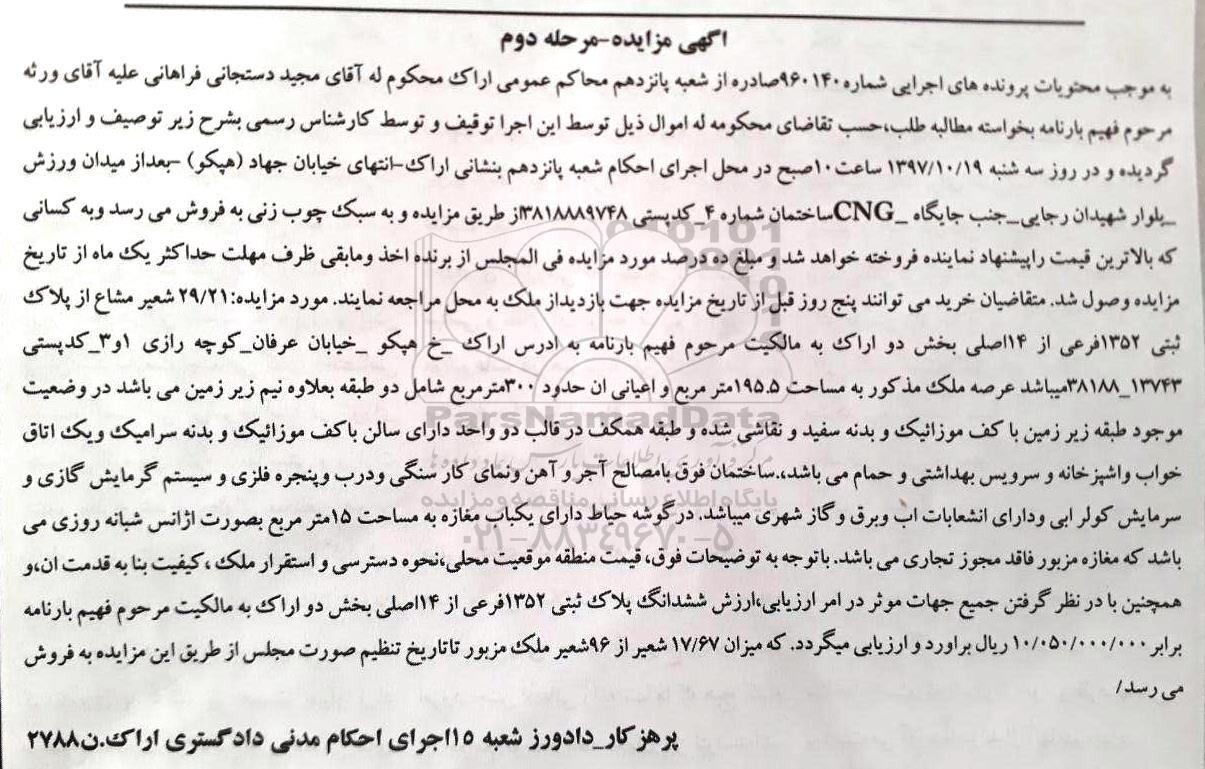 اگهی مزایده-مرحله دوم
به موجب محتویات پرونده های اجرایی شماره۹۶۰۱۴۰صادره از شعبه پانزدهم محاکم عمومی اراک محکوم له آقای مجید دستجانی فراهانی علیه آقای ورثه
مرحوم فهیم بارنامه بخواسته مطالبه طلب،حسب تقاضای محکومه له اموال ذیل توسط این اجرا توقیف و توسط کارشناس رسمی بشرح زیر توصیف و ارزیابی
گردیده و در روز سه شنبه ۱۳۹۷/۱۰/۱۹ ساعت۱۰صبح در محل اجرای احکام شعبه پانزدهم بنشانی اراک-انتهای خیابان جهاد (هپکو) -بعداز میدان ورزش
_بلوار شهیدان رجایی_جنب جایگاه _CNGساختمان شماره ۴_کدپستی ۳۸۱۸۸۸۹۷۴۸از طریق مزایده و به سبک چوب زنی به فروش می رسد وبه کسانی
که بالاترین قیمت راپیشنهاد نماینده فروخته خواهد شد و مبلغ ده درصد مورد مزایده فی المجلس از برنده اخذ ومابقی ظرف مهلت حداکثر یک ماه از تاریخ
مزایده وصول شد. متقاضیان خرید می توانند پنج روز قبل از تاریخ مزایده جهت بازدیداز ملک به محل مراجعه نمایند. مورد مزایده:۲۹/۲۱ شعیر مشاع از پلاک
ثبتی ۱۳۵۲فرعی از ۱۴اصلی بخش دو اراک به مالکیت مرحوم فهیم بارنامه به ادرس اراک _خ هپکو _خیابان عرفان_کوچه رازی ۱و۳_کدپستی
۱۳۷۴۳_۳۸۱۸۸میباشد عرصه ملک مذکور به مساحت ۱۹۵.۵متر مربع و اعیانی ان حدود ۳۰۰مترمربع شامل دو طبقه بعلاوه نیم زیر زمین می باشد در وضعیت
موجود طبقه زیر زمین با کف موزائیک و بدنه سفید و نقاشی شده و طبقه همکف در قالب دو واحد دارای سالن باکف موزائیک و بدنه سرامیک ویک اتاق
خواب واشپزخانه و سرویس بهداشتی و حمام می باشد،.ساختمان فوق بامصالح آجر و آهن ونمای کار سنگی ودرب وپنجره فلزی و سیستم گرمایش گازی و
سرمایش کولر ابی ودارای انشعابات اب وبرق و گاز شهری میباشد. در گوشه حیاط دارای یکباب مغازه به مساحت ۱۵متر مربع بصورت اژانس شبانه روزی می
باشد که مغازه مزبور فاقد مجوز تجاری می باشد. باتوجه به توضیحات فوق، قیمت منطقه موقعیت محلی،نحوه دسترسی و استقرار ملک ،کیفیت بنا به قدمت ان،و
همچنین با در نظر گرفتن جمیع جهات موثر در امر ارزیابی،ارزش ششدانگ پلاک ثبتی ۱۳۵۲فرعی از ۱۴اصلی بخش دو اراک به مالکیت مرحوم فهیم بارنامه
برابر ۱۰/۰۵۰/۰۰۰/۰۰۰ ریال براورد و ارزیابی میگردد. که میزان ۱۷/۶۷ شعیر از ۹۶شعیر ملک مزبور تاتاریخ تنظیم صورت مجلس از طریق این مزایده به فروش
می رسد/
پرهزکار_دادورز شعبه ۱۵اجرای احکام مدنی دادگستری اراک.ن۲۷۸۸
ParsNamadData
پایگاه اطلاع رسانی مناقصه و مزایده
۰۲۱-۸۸۳۴۹۶۷۰-۵